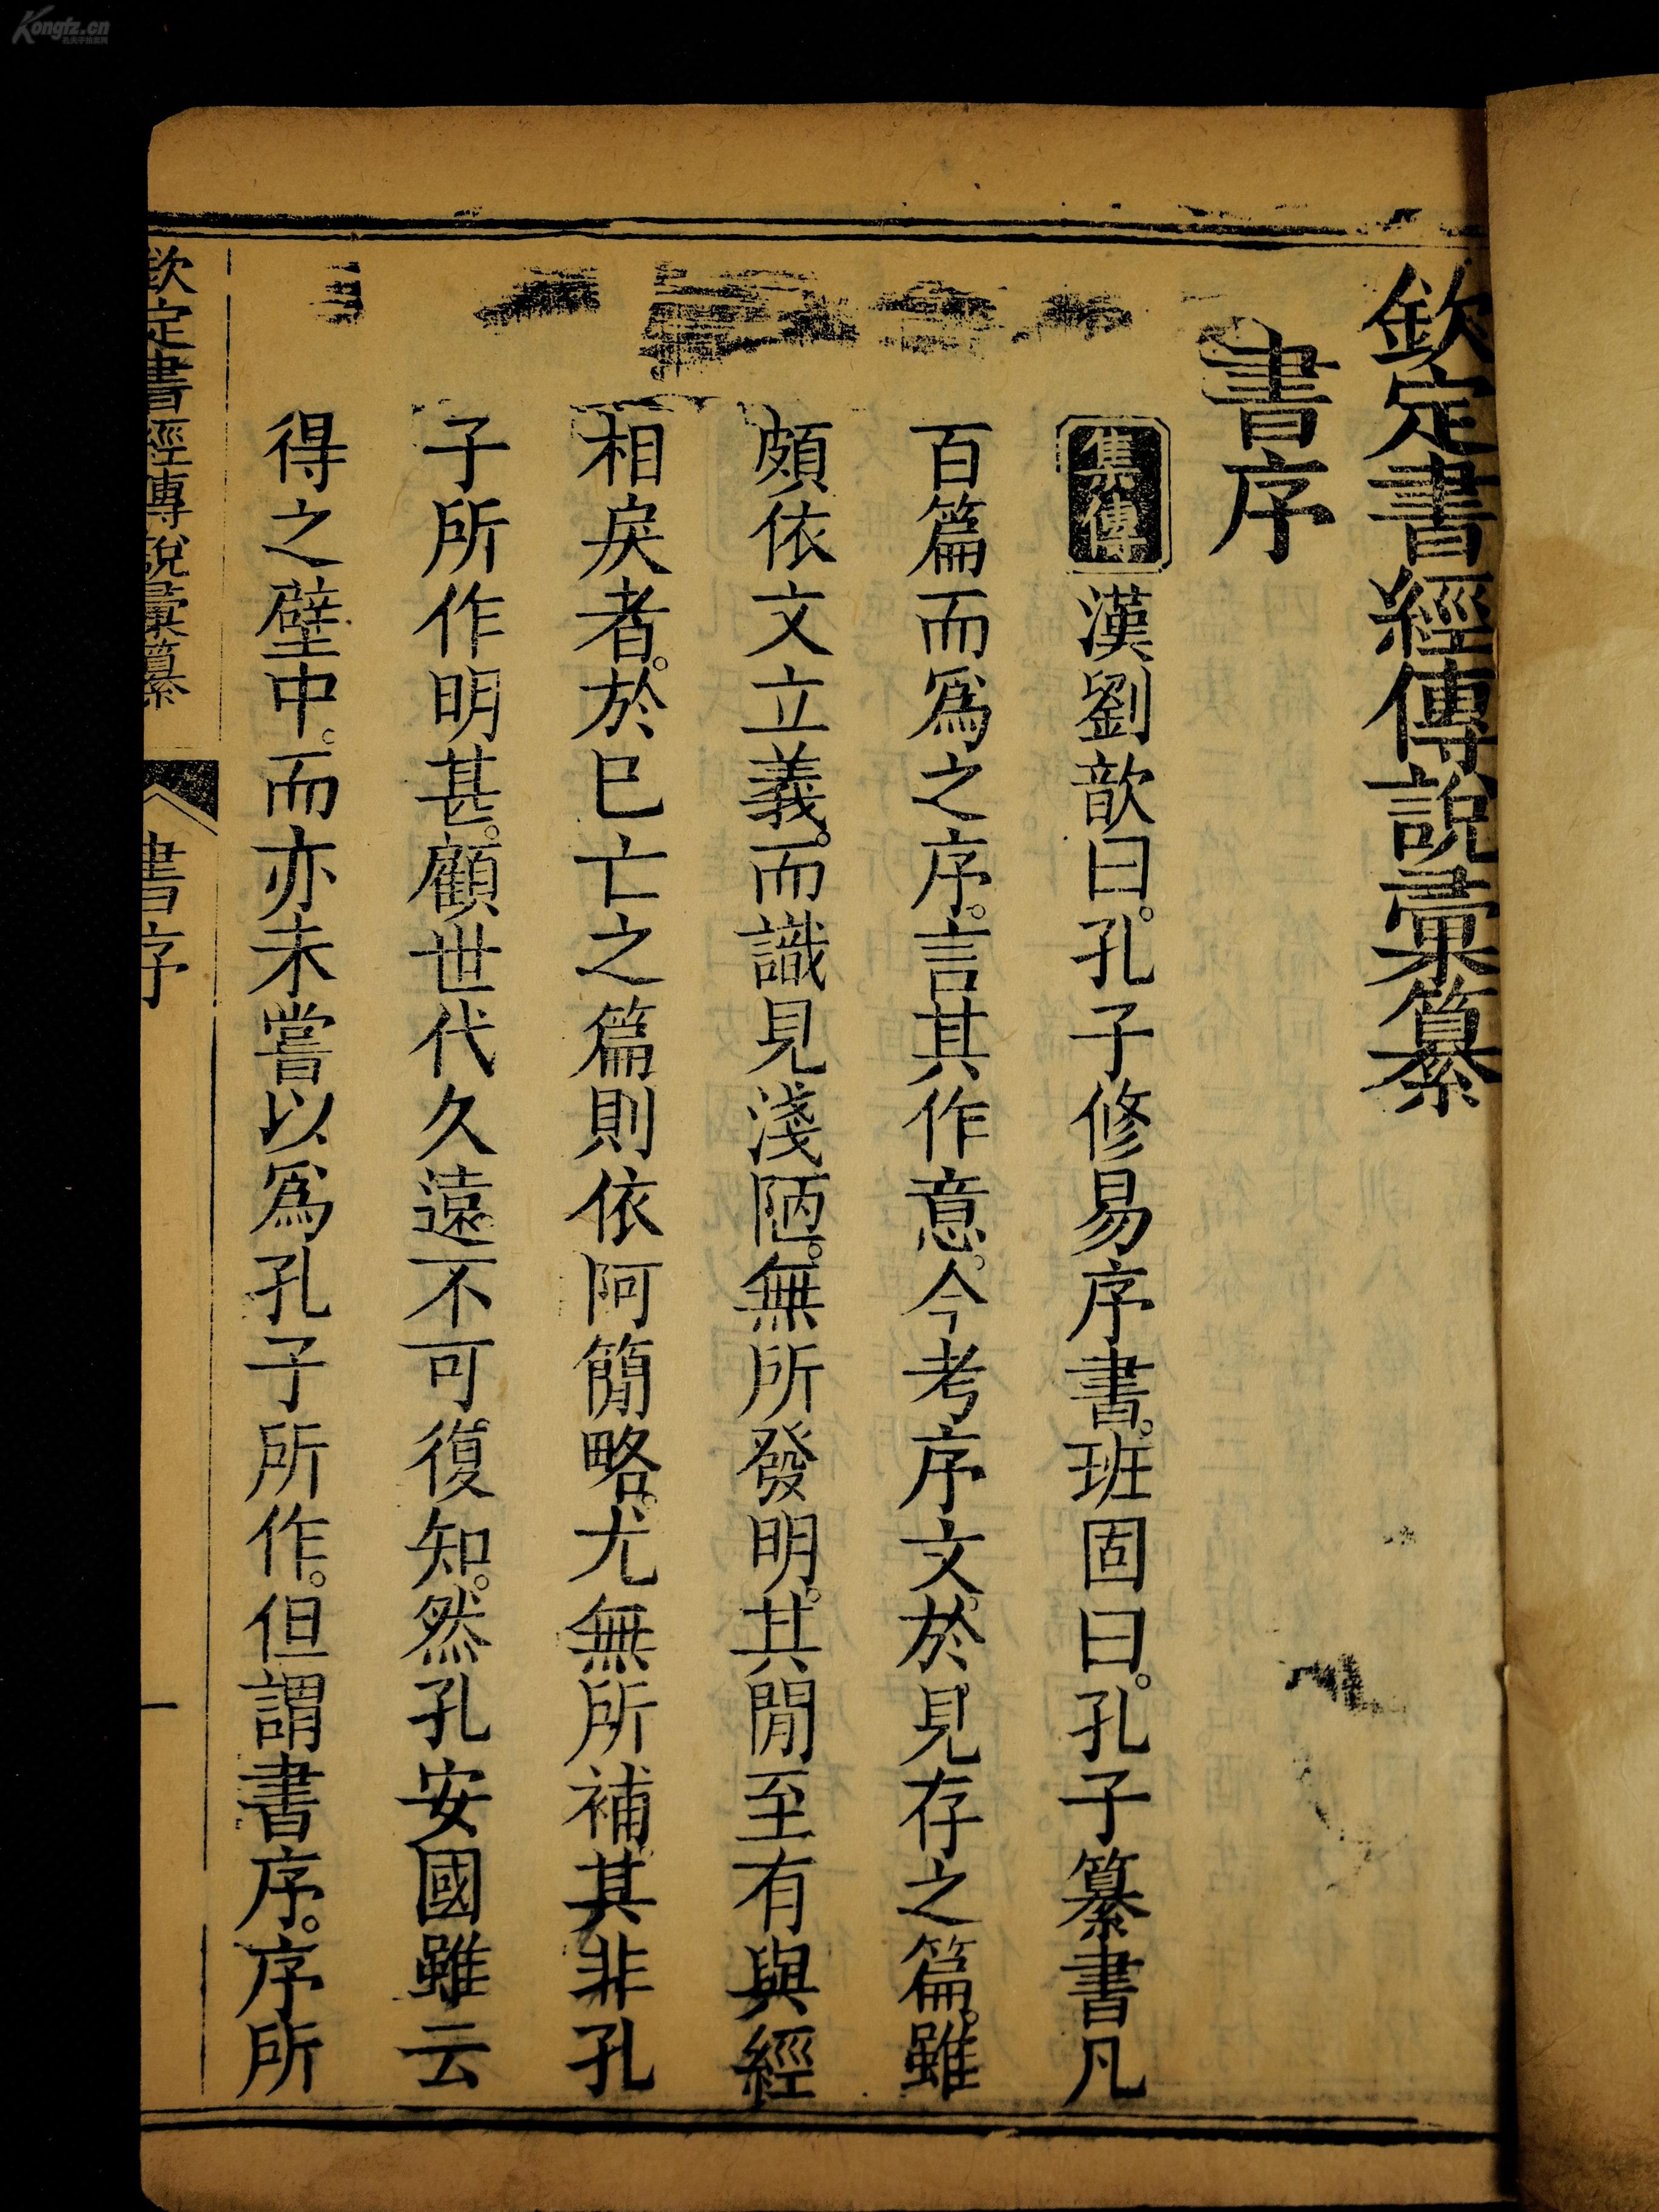 欽定書經傳說彙纂
書序
集傳 漢劉歆曰。孔子修易序書。班固曰。孔子纂書凡
百篇而爲之序。言其作意。今考序文。於見存之篇。雖
頗依文立義。而識見淺陋。無所發明。其閒至有與經
相戾者。於已亡之篇則依阿簡略。尤無所補。其非孔
子所作明甚。顧世代久遠。不可復知。然孔安國雖云
得之壁中。而亦未嘗以爲孔子所作。但謂書序。序所
欽定書經傳說彙纂 書序 一
Kongfz.cn